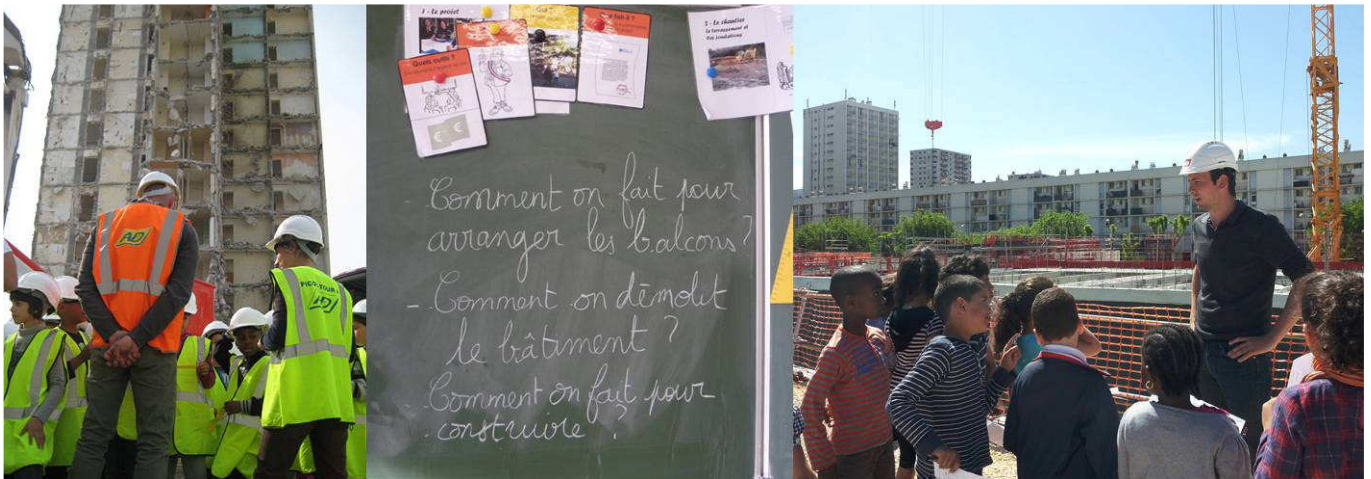 AD
PICO TOUR
AD
1 - Le projet
Quels outils ?
2 - Le chantier
le terrassement et
les fondations
- Comment on fait pour
arranger les balcons ?
- Comment on démolit
le bâtiment ?
- Comment on fait pour
construire ?